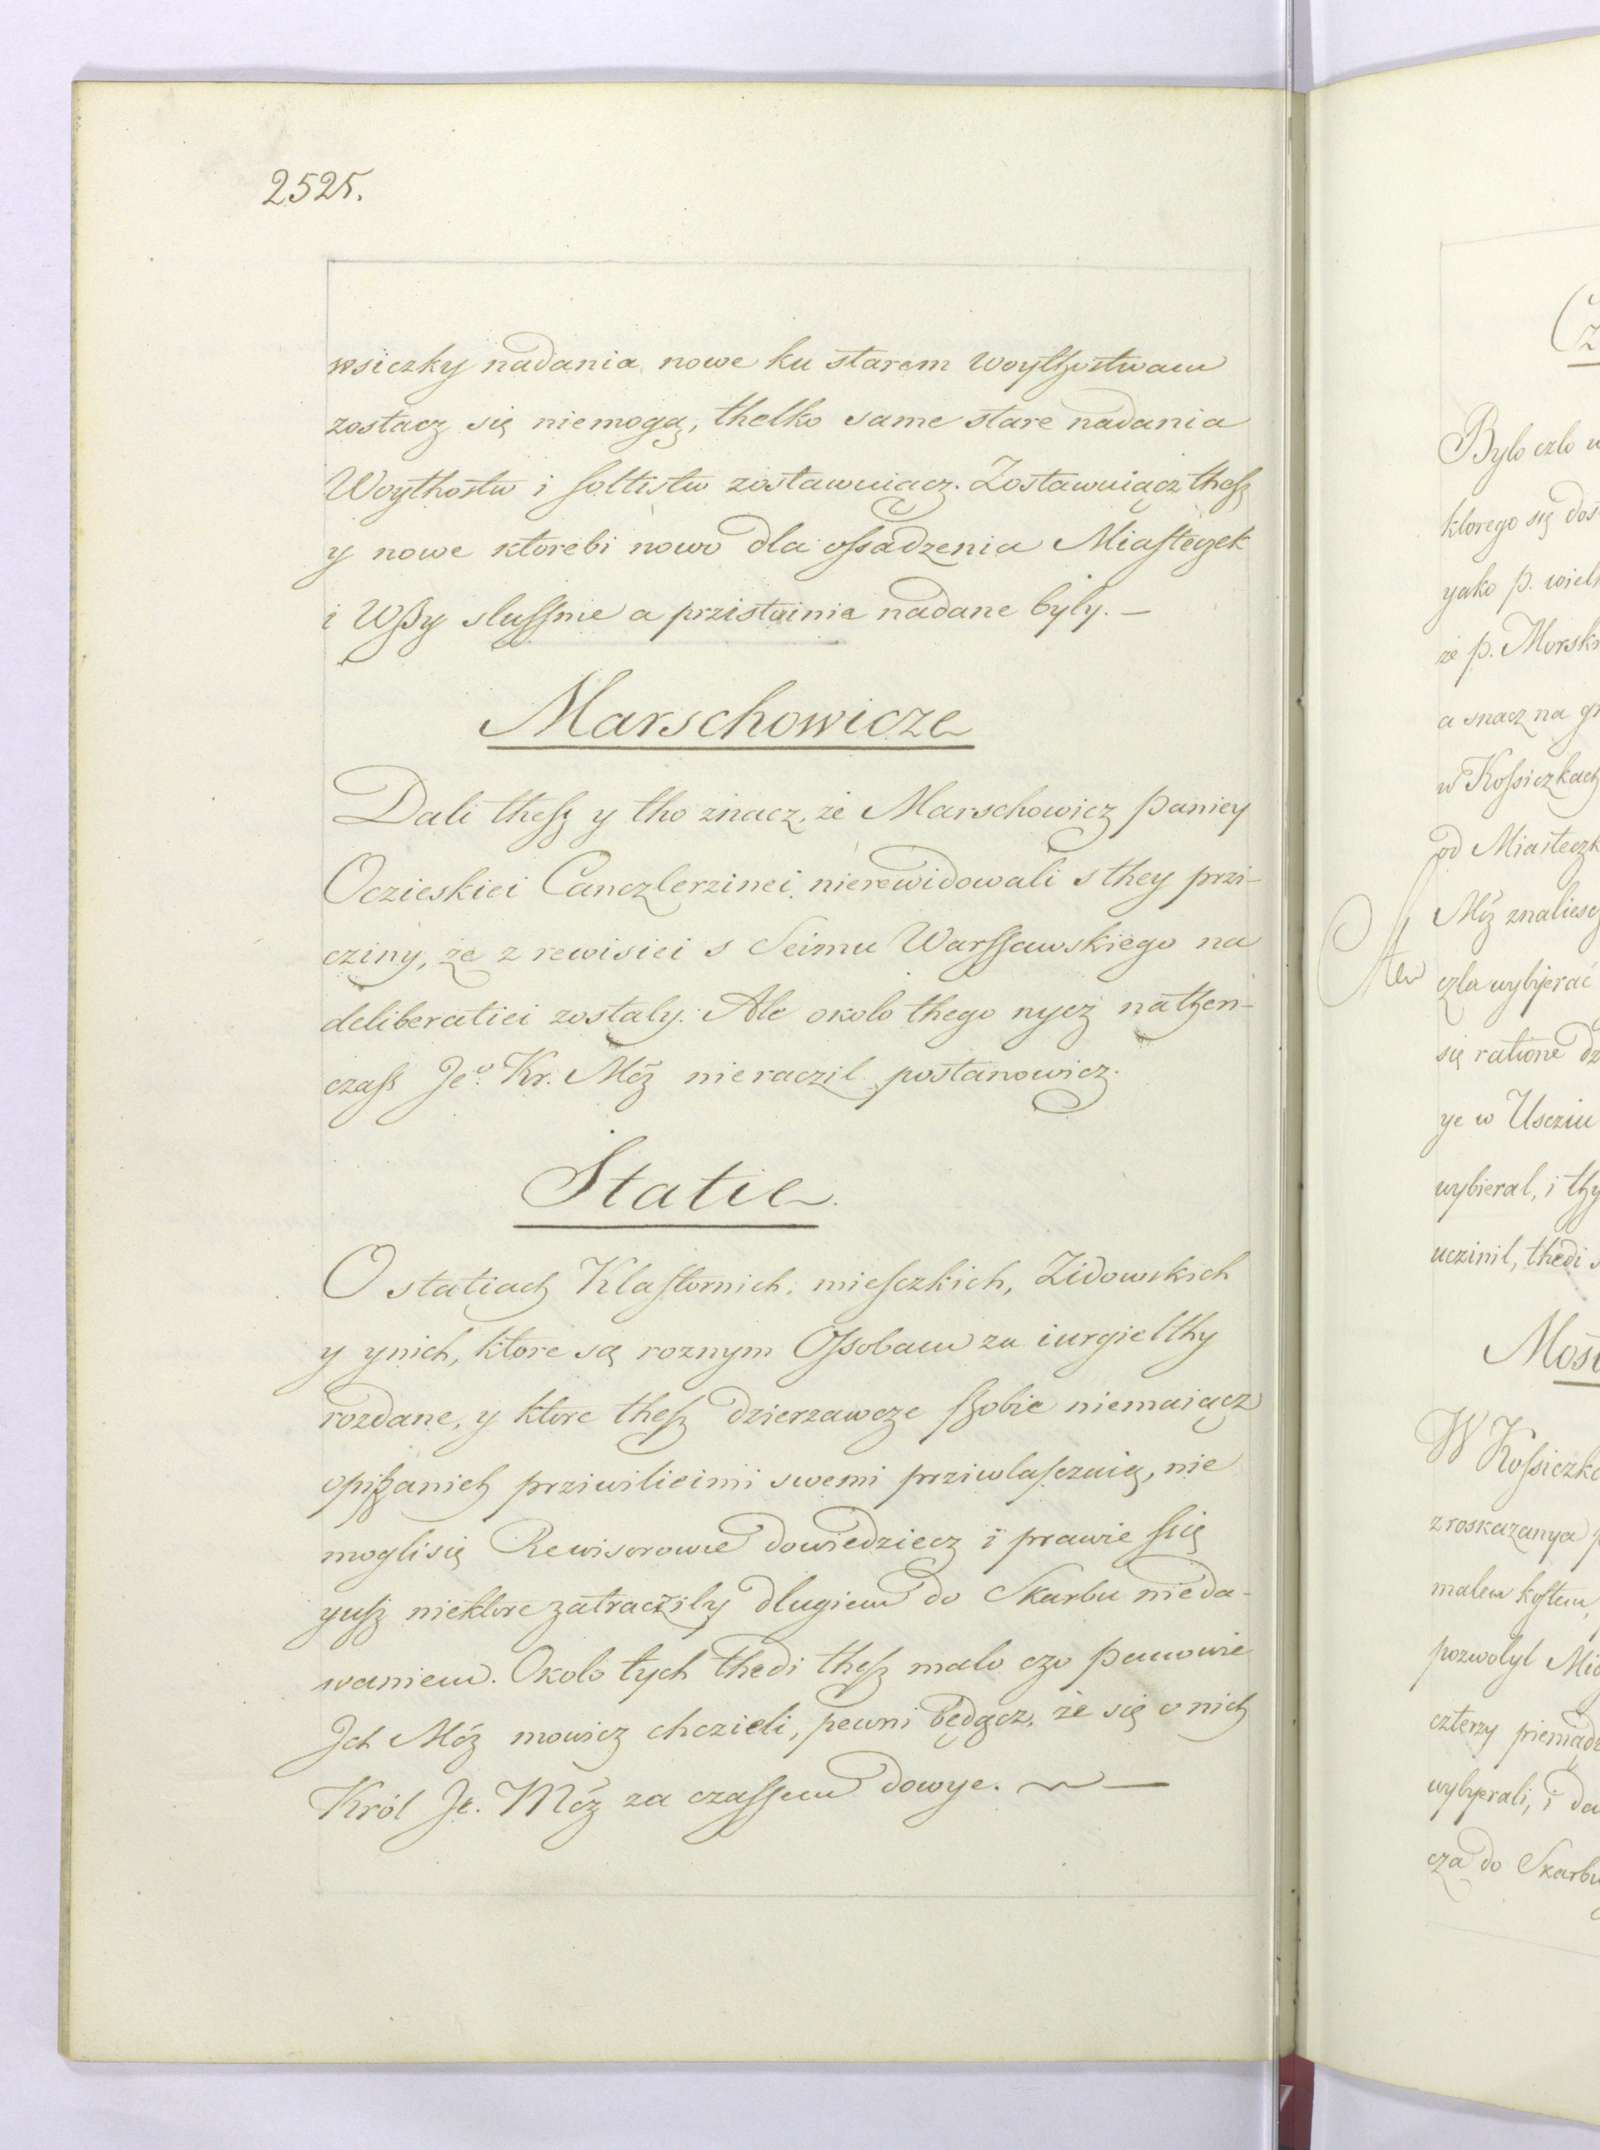 2525.
wsiczky nadania nowe ku starem woythostwam
zostacz się niemogą, thelko same stare nadania
Woythostw i soltistw zostawuiącz. Zostawuiącz thesz
y nowe ktorebi nowo dla ossadzenia Miasteczek
i Wssy slussnie a przistuinie nadane byly. —
Marschowicze
Dali thesz y tho znacz, że Marschowicz Paniey
Oczieskiei Canczlerzinei nierewidowali s they przi-
cziny, że z rewisiei s Seimu Warssawskiego na
deliberatiei zostaly. Ale okolo thego nycz nathen-
czass Jeo. Kr. Mcz nieraczil postanowicz.
Statie.
O statiach Klasztornich, miesczkich, Zidowskich
y ynich, ktore są roznym Ossobam za iurgielthy
rozdane, y ktore thesz dzierzawcze szobie niemaiącz
opiszanich prziwilieimi swemi prziwlasczaią, nie
mogli się Rewisorowie dowiedziecz i prawie szię
yusz niektore zatraczily dlugiem do Skarbu nieda-
waniem. Okolo tych thedi thesz malo czo Panowie
Ich Mcz mowicz chczieli, pewni będącz, że się o nich
Król Je. Mcz za czassem dowye. —
Bylo czlo w
ktorego się dos
yako p. wielk
że p. Morski
a snacz na gr
w Kossiczkach
od Miasteczk
Mcz znaliescz
czla wybyerać
się ratione dz
ye w Usciu
wybieral, i thy
uczinil, thedi s
Most
W Kossiczka
z roskazanya p
malem kostem,
pozwolyl Mia
czterzy pieniądz
wybyerali, i da
cza do Skarbu